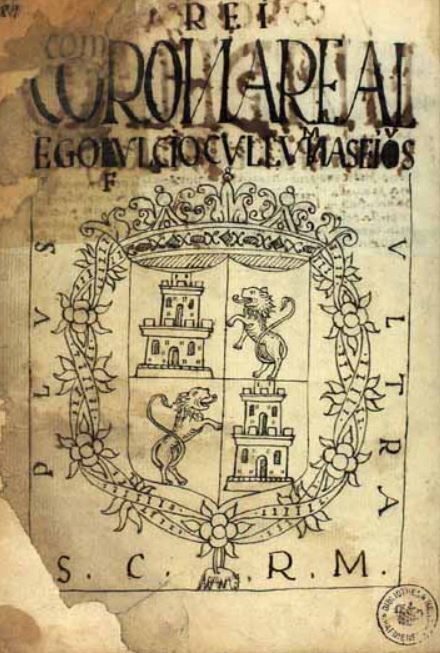 REI
CORONAREAL
EGOFVLCIOCVLLVMNASEIOS
F
PLVS
VLTRA
S. C. R. M.